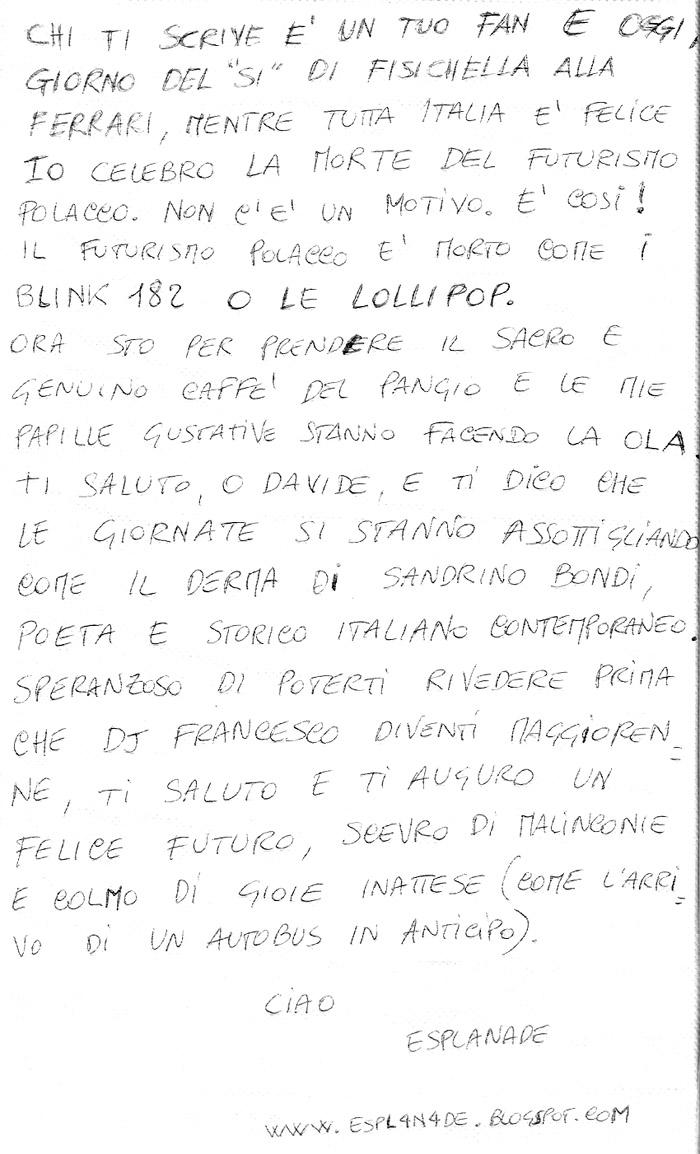 CHI TI SCRIVE E' UN TUO FAN E OGGI,
GIORNO DEL "SI" DI FISICHELLA ALLA
FERRARI, MENTRE TUTTA ITALIA E' FELICE
IO CELEBRO LA MORTE DEL FUTURISMO
POLACCO. NON C'E' UN MOTIVO. E' COSÌ!
IL FUTURISMO POLACCO E' MORTO COME I
BLINK 182 O LE LOLLIPOP.
ORA STO PER PRENDERE IL SACRO E
GENUINO CAFFE' DEL PANGIO E LE MIE
PAPILLE GUSTATIVE STANNO FACENDO LA OLA.
TI SALUTO, O DAVIDE, E TI DICO CHE
LE GIORNATE SI STANNO ASSOTTIGLIANDO
COME IL DERMA DI SANDRINO BONDI,
POETA E STORICO ITALIANO CONTEMPORANEO.
SPERANZOSO DI POTERTI RIVEDERE PRIMA
CHE DJ FRANCESCO DIVENTI MAGGIOREN=
NE, TI SALUTO E TI AUGURO UN
FELICE FUTURO, SCEVRO DI MALINCONIE
E COLMO DI GIOIE INATTESE (COME L'ARRI=
VO DI UN AUTOBUS IN ANTICIPO).
CIAO
ESPLANADE
WWW.ESPL4N4DE.BLOGSPOT.COM